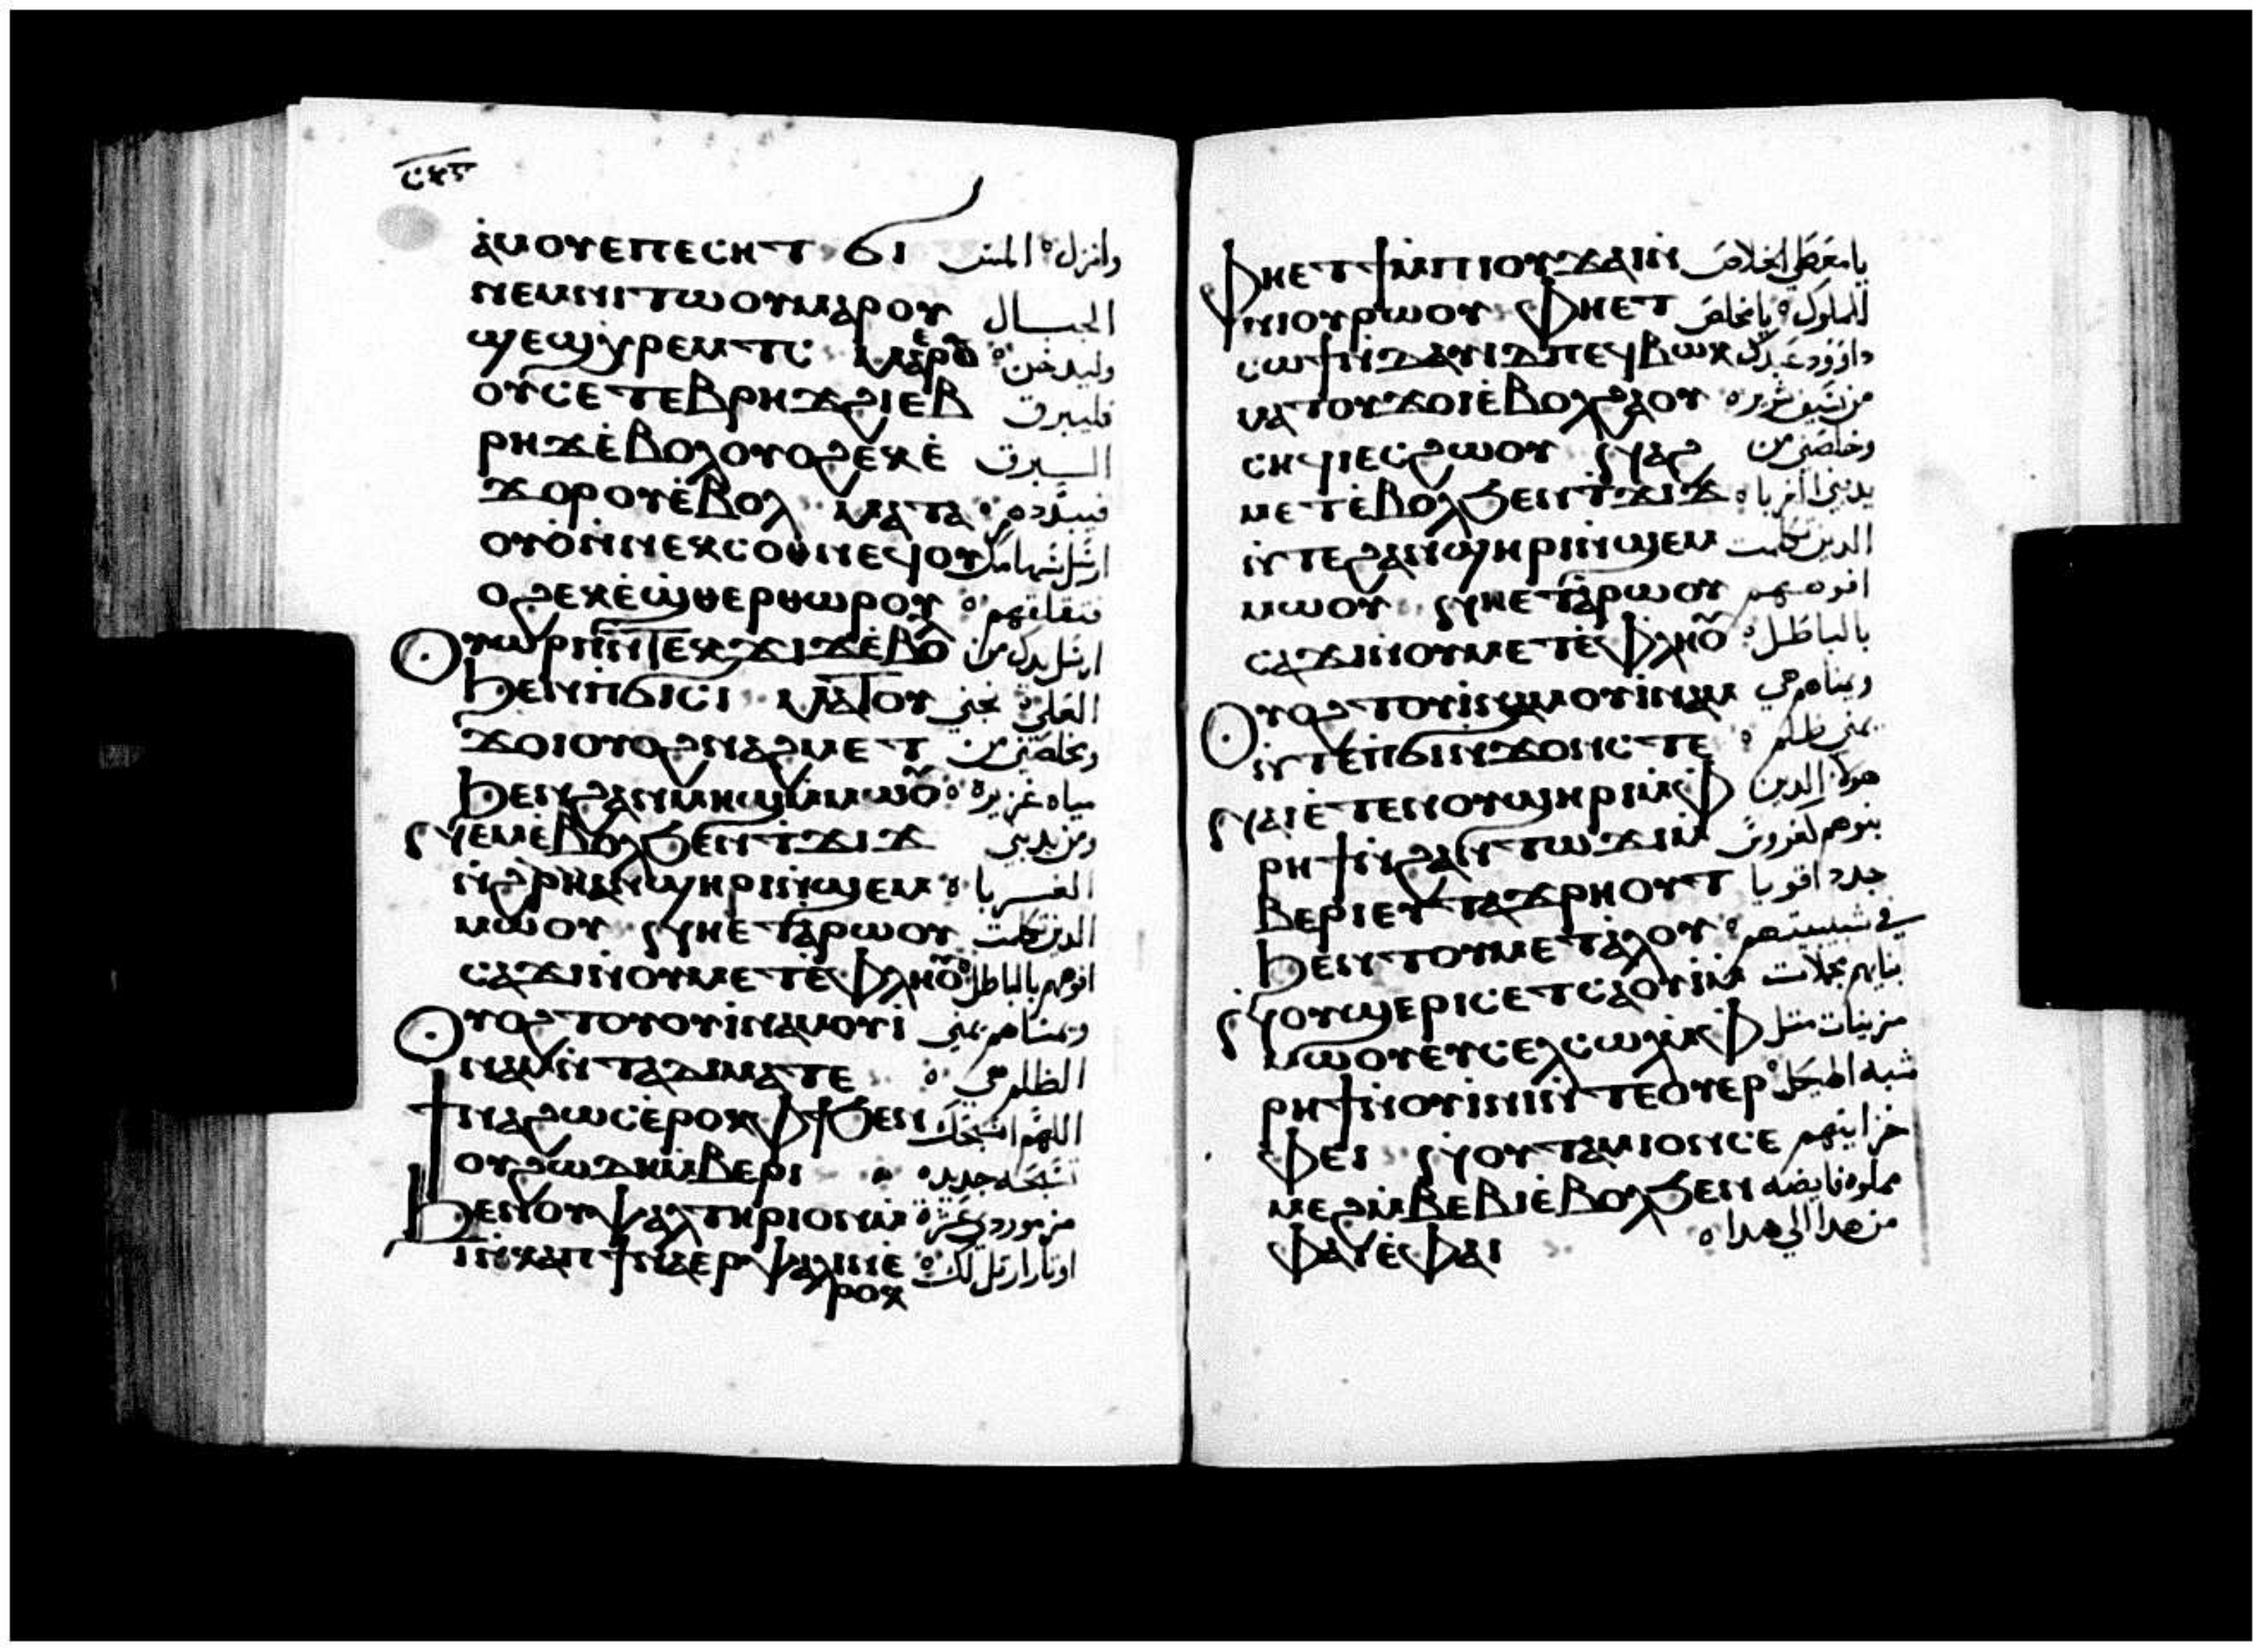 ⲥⲙⲋ
ⲁ̀ⲙⲟⲩⲉⲡⲉⲥⲏⲧ ϭⲓ وانزل ه المس
ⲛⲉⲙⲛⲓⲧⲱⲟⲩⲙⲁⲣⲟⲩ الجبال
ϣⲉϣⲭⲣⲉⲙⲧⲥ وليدخن ه
ⲟⲩⲥⲉⲧⲉⲃⲣⲏϫϩⲓⲉⲃ فليبرق
ⲣⲏϫⲉ̀ⲃⲟⲗⲟⲩⲟϩⲉⲕⲉ̀ البرق
ϫⲟⲣⲟⲩⲉ̀ⲃⲟⲗ ⲙⲁⲧⲁ فيبددهم ه
ⲟⲩⲟ̀ⲛ̀ⲛⲉⲕⲥⲟⲑⲛⲉϥⲟⲩ ارسل سهامك
ⲟϩⲉⲕⲉ̀ϣⲑⲉⲣⲑⲱⲣⲟⲩ فتقلقهم ه
ⲟⲩⲱⲣⲡⲛ̀ⲧⲉⲕϫⲓϫⲉ̀ⲃⲟ̄ⲗ ارسل يدك من
ϧⲉⲛⲡ̀ϭⲓⲥⲓ ⲙⲁⲧⲟⲩ العلي ه نجني
ϫⲟⲓⲟⲩⲟϩⲛⲁϩⲙⲉⲧ وخلصني من
ϧⲉⲛϩⲁⲛⲙⲏϣⲙ̀ⲙⲱⲟ̄ مياه غزيره ه
ⲛⲉⲙⲉ̀ⲃⲟⲗϧⲉⲛⲧ̀ϫⲓϫ ومن يد بني
ⲛ̀ϩⲣⲏⲛϣⲏⲣⲓⲛ̀ϣⲉⲙ الغربا ه
ⲙⲱⲟⲩ ⲛⲏⲉⲧⲁ̀ⲣⲱⲟⲩ الدين تكلمت
ⲥⲁϫⲓⲛ̀ⲟⲩⲙⲉⲧⲉ̀ⲫⲗⲏⲟ̄ افوههم بالباطل ه
ⲟⲩⲟϩⲧⲟⲩⲟⲩⲓ̀ⲛⲁⲙⲟⲩⲓ̀ ويمناهم يمني
ⲛⲁⲙⲛ̀ⲧⲁⲇⲓⲙⲁⲧⲉ الظلم هي ه
ϯⲛⲁϩⲱⲥⲉ̀ⲣⲟⲕⲫϯϧⲉⲛ اللهم اسبحك
ⲟⲩϩⲱⲇⲏⲙ̀ⲃⲉⲣⲓ تسبحه جديده
ϧⲉⲛⲟⲩⲯⲁⲗⲧⲏⲣⲓⲟⲛⲙ̀ مزمور دي عشرة
ⲓⲛ̀ⲕⲁⲡϯⲛⲁⲉⲣⲯⲁⲗⲓⲛⲉ̀ اوتار ارتل لك ه
ⲣⲟⲕ
ⲫⲏⲉⲧϯⲙ̀ⲡⲓⲟⲩϫⲁⲓⲛ̀ يا معطي الخلاص
ⲛⲓⲟⲩⲣⲱⲟⲩ ⲫⲏⲉⲧ للملوك ه يا مخلص
ⲥⲱϯⲛ̀ⲇⲁⲩⲓⲇⲡⲉϥⲃⲱⲕ داوود عبدك
ⲙⲁⲧⲟⲩϫⲟⲓⲉ̀ⲃⲟⲗϩⲁⲟⲩ من سيف شريره
ⲥⲏϥⲓⲉⲥϩⲱⲟⲩ ⲛⲁϩ وخلصني من
ⲙⲉⲧⲉ̀ⲃⲟⲗϧⲉⲛⲧ̀ϫⲓϫ يد بني الغربا ه
ⲛ̀ⲧⲉϩⲁⲛϣⲏⲣⲓⲛ̀ϣⲉⲙ الدين تكلمت
ⲙⲱⲟⲩ ⲛⲏⲉⲧⲁ̀ⲣⲱⲟⲩ افوههم
ⲥⲁϫⲓⲛ̀ⲟⲩⲙⲉⲧⲉ̀ⲫⲗⲏⲟ̄ بالباطل ه
ⲟⲩⲟϩⲧⲟⲩⲓ̀ⲛⲁⲙⲟⲩⲓ̀ⲛⲁⲙ ويمناهم هي
ⲛ̀ⲧⲉⲡ̀ϭⲓⲛϫⲟⲛⲥⲧⲉ يمني ظلم ه
ⲛⲁⲓⲉ̀ⲧⲉⲛⲟⲩϣⲏⲣⲓⲙ̀ⲫ هولاء الدين
ⲣⲏϯⲛ̀ϩⲁⲛⲧⲱϫⲓⲙ̀ بنوهم كغروس
ⲃⲉⲣⲓⲉⲩⲧⲁϫⲣⲏⲟⲩⲧ جدد اقويا
ϧⲉⲛⲧⲟⲩⲙⲉⲧⲁ̀ⲗⲟⲩ في شبيبتهم ه
ⲛⲟⲩϣⲉⲣⲓⲥⲉⲧⲥⲁⲟⲩⲓⲙ̀ بناتهم مجملات
ⲙⲱⲟⲩⲉⲩⲥⲉⲗⲥⲱⲗⲙ̀ⲫ مزينات متل
ⲣⲏϯⲛ̀ⲟⲩⲓ̀ⲛⲓⲛ̀ⲧⲉⲟⲩⲉⲣ شبه الهيكل ه
ⲫⲉⲓ ⲛⲟⲩⲧⲁⲙⲓⲟⲛⲥⲉ خزاينهم
ⲙⲉϩⲙ̀ⲃⲉⲃⲓⲉ̀ⲃⲟⲗϧⲉⲛ مملوه فايضه
ⲫⲁⲓⲉ̀ⲫⲁⲓ من هدا الي هدا ه